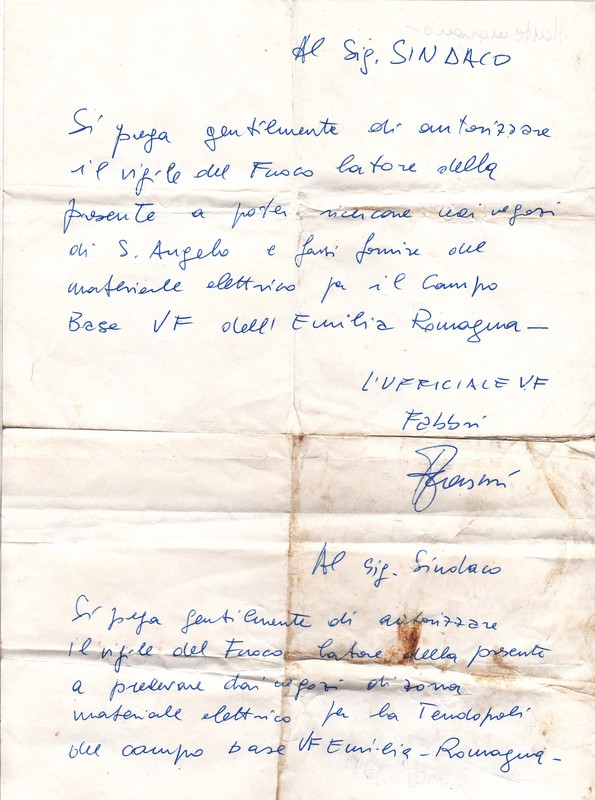 Al Sig. SINDACO
Si prega gentilmente di autorizzare
il vigile del Fuoco latore della
presente a poter ricercare nei negozi
di S. Angelo e farsi fornire del
materiale elettrico per il Campo
Base VF dell'Emilia Romagna —
L'UFFICIALE VF
Fabbri
Al Sig. Sindaco
Si prega gentilmente di autorizzare
il vigile del Fuoco latore della presente
a prelevare dai negozi di zona
materiale elettrico per la Tendopoli
del campo base VF Emilia - Romagna -